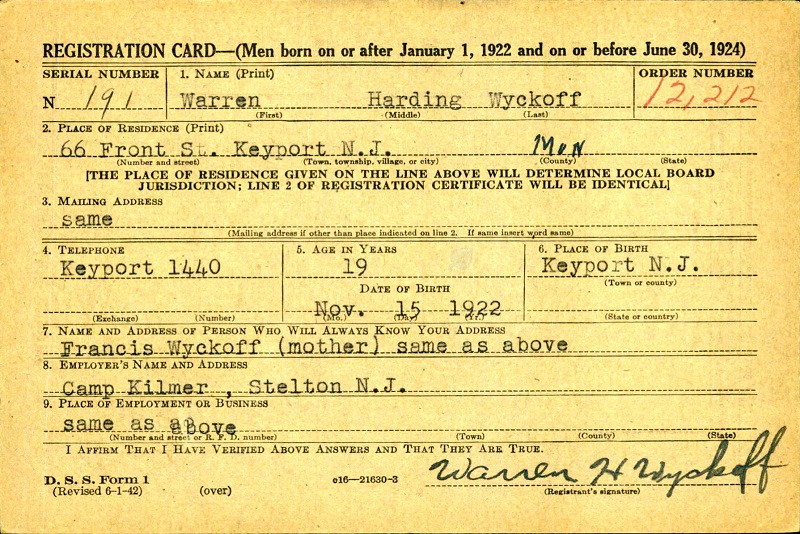 REGISTRATION CARD—(Men born on or after January 1, 1922 and on or before June 30, 1924)
SERIAL NUMBER 1. NAME (Print) ORDER NUMBER
N 191 Warren Harding Wyckoff 12,212
(First) (Middle) (Last)
2. PLACE OF RESIDENCE (Print)
66 Front St. Keyport N.J. Mon
(Number and street) (Town, township, village, or city) (County) (State)
[THE PLACE OF RESIDENCE GIVEN ON THE LINE ABOVE WILL DETERMINE LOCAL BOARD
JURISDICTION; LINE 2 OF REGISTRATION CERTIFICATE WILL BE IDENTICAL]
3. MAILING ADDRESS
same
(Mailing address if other than place indicated on line 2. If same insert word same)
4. TELEPHONE 5. AGE IN YEARS 6. PLACE OF BIRTH
Keyport 1440 19 Keyport N.J.
(Town or county)
DATE OF BIRTH
Nov. 15 1922
(Exchange) (Number) (Mo.) (Day) (Yr.) (State or country)
7. NAME AND ADDRESS OF PERSON WHO WILL ALWAYS KNOW YOUR ADDRESS
Francis Wyckoff (mother) same as above
8. EMPLOYER'S NAME AND ADDRESS
Camp Kilmer , Stelton N.J.
9. PLACE OF EMPLOYMENT OR BUSINESS
same as above
(Number and street or R. F. D. number) (Town) (County) (State)
I AFFIRM THAT I HAVE VERIFIED ABOVE ANSWERS AND THAT THEY ARE TRUE.
Warren H Wyckoff
D. S. S. Form 1
(Revised 6-1-42) (over) c16—21630-3 (Registrant's signature)